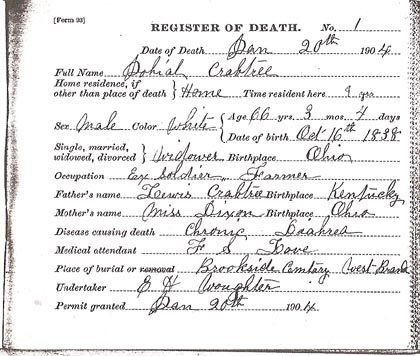 [Form 93]
REGISTER OF DEATH. No. 1
Date of Death Jan 20th 1904
Full Name Dobial Crabtree
Home residence, if other than place of death } Home Time resident here 9 yrs.
Sex Male Color White { Age 66 yrs 3 mos. 4 days
Date of birth Oct 16th 1838
Single, married, widowed, divorced } Widower Birthplace Ohio
Occupation Ex Soldier, Farmer
Father's name Lewis Crabtree Birthplace Kentucky
Mother's name Miss Dixon Birthplace Ohio
Disease causing death Chronic Diahrea
Medical attendant F S Love
Place of burial or removal Brookside Cemtary West Branch
Undertaker E H Woughter
Permit granted Jan 20th 1904.